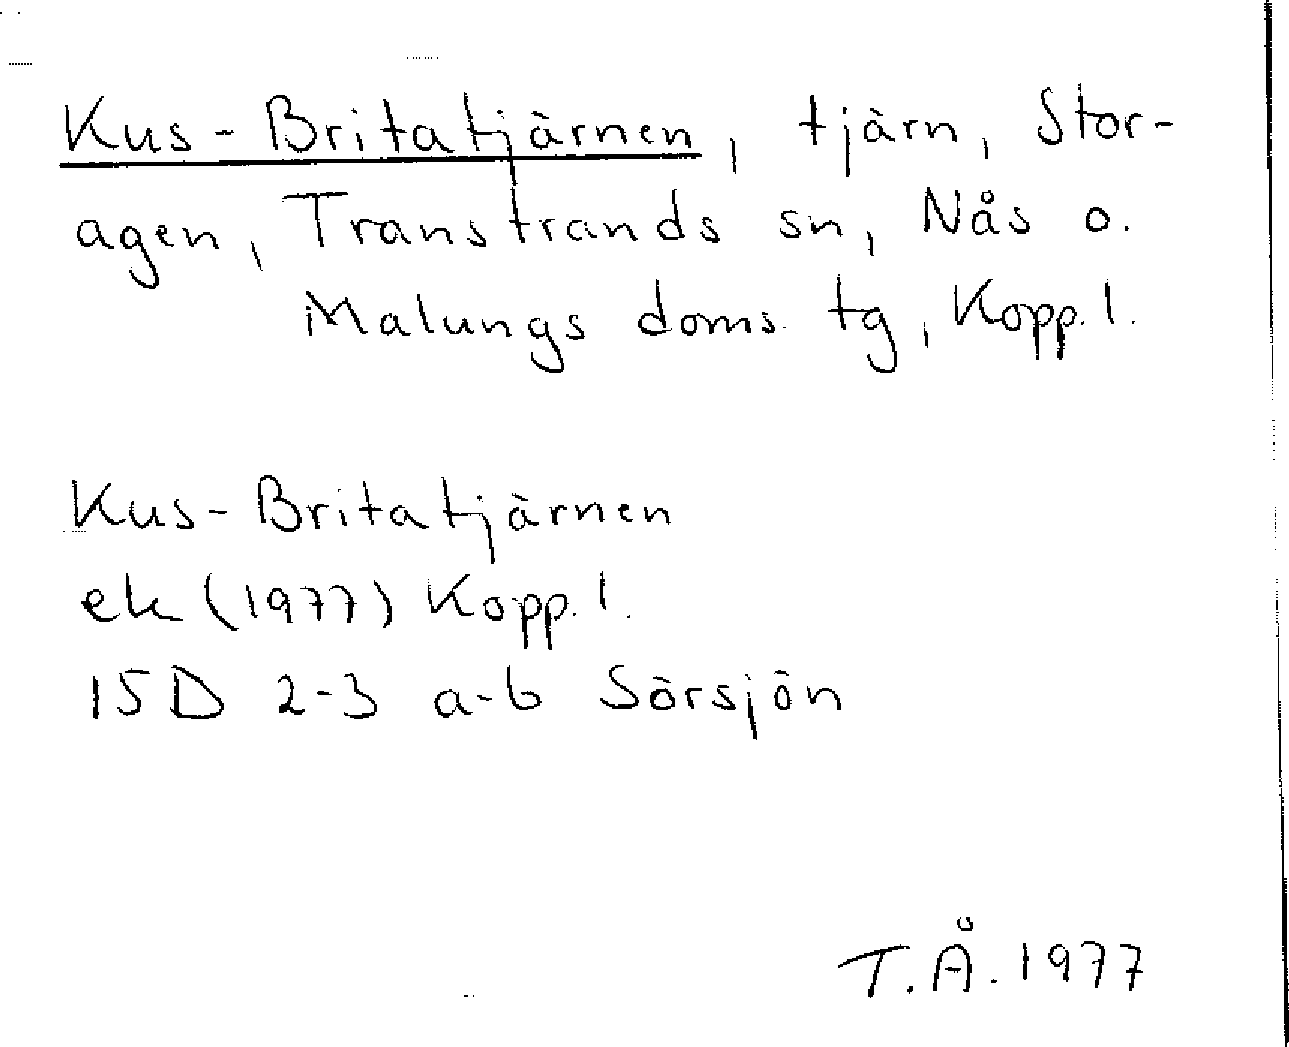 Kus-Britatjärnen, tjärn, Stor-
agen, Transtrands sn, Nås o.
Malungs doms. tg, Kopp. l.
Kus-Britatjärnen
ek (1977) Kopp. l.
15D 2-3 a-b Sörsjön
T.Å. 1977